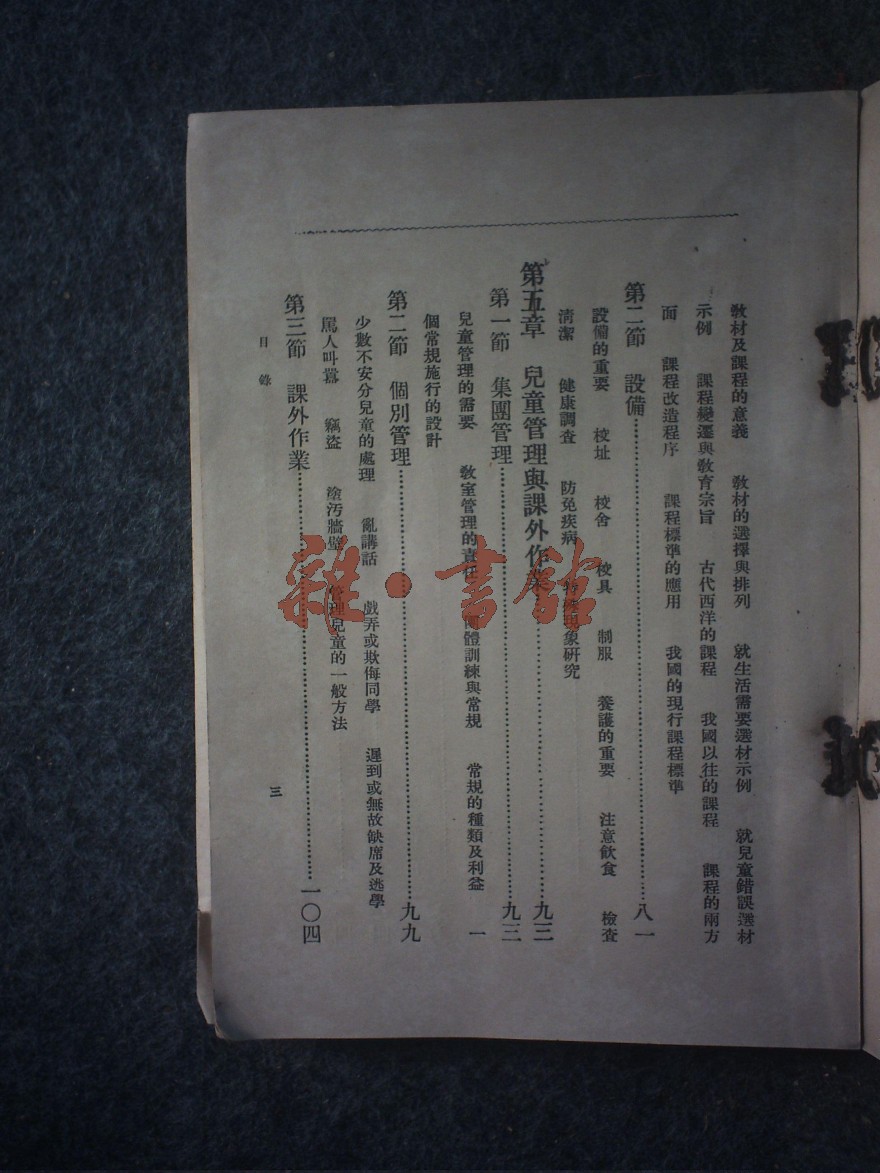 教材及課程的意義　教材的選擇與排列　就生活需要選材示例　就兒童錯誤選材
示例　課程變遷與教育宗旨　古代西洋的課程　我國以往的課程　課程的兩方
面　課程改造程序　課程標準的應用　我國的現行課程標準
第二節　設備……八一
設備的重要　校址　校舍　校具　制服　養護的重要　注意飲食　檢查
清潔　健康調查　防免疾病　特殊現象研究
第五章　兒童管理與課外作業……九三
第一節　集團管理……九三
兒童管理的需要　教室管理的責任　團體訓練與常規　常規的種類及利益　一
個常規施行的設計
第二節　個別管理……九九
少數不安分兒童的處理　亂講話　戲弄或欺侮同學　遲到或無故缺席及逃學
罵人叫囂　竊盜　塗汚牆壁　管理兒童的一般方法
第三節　課外作業……一〇四
目錄
三
雜·書館